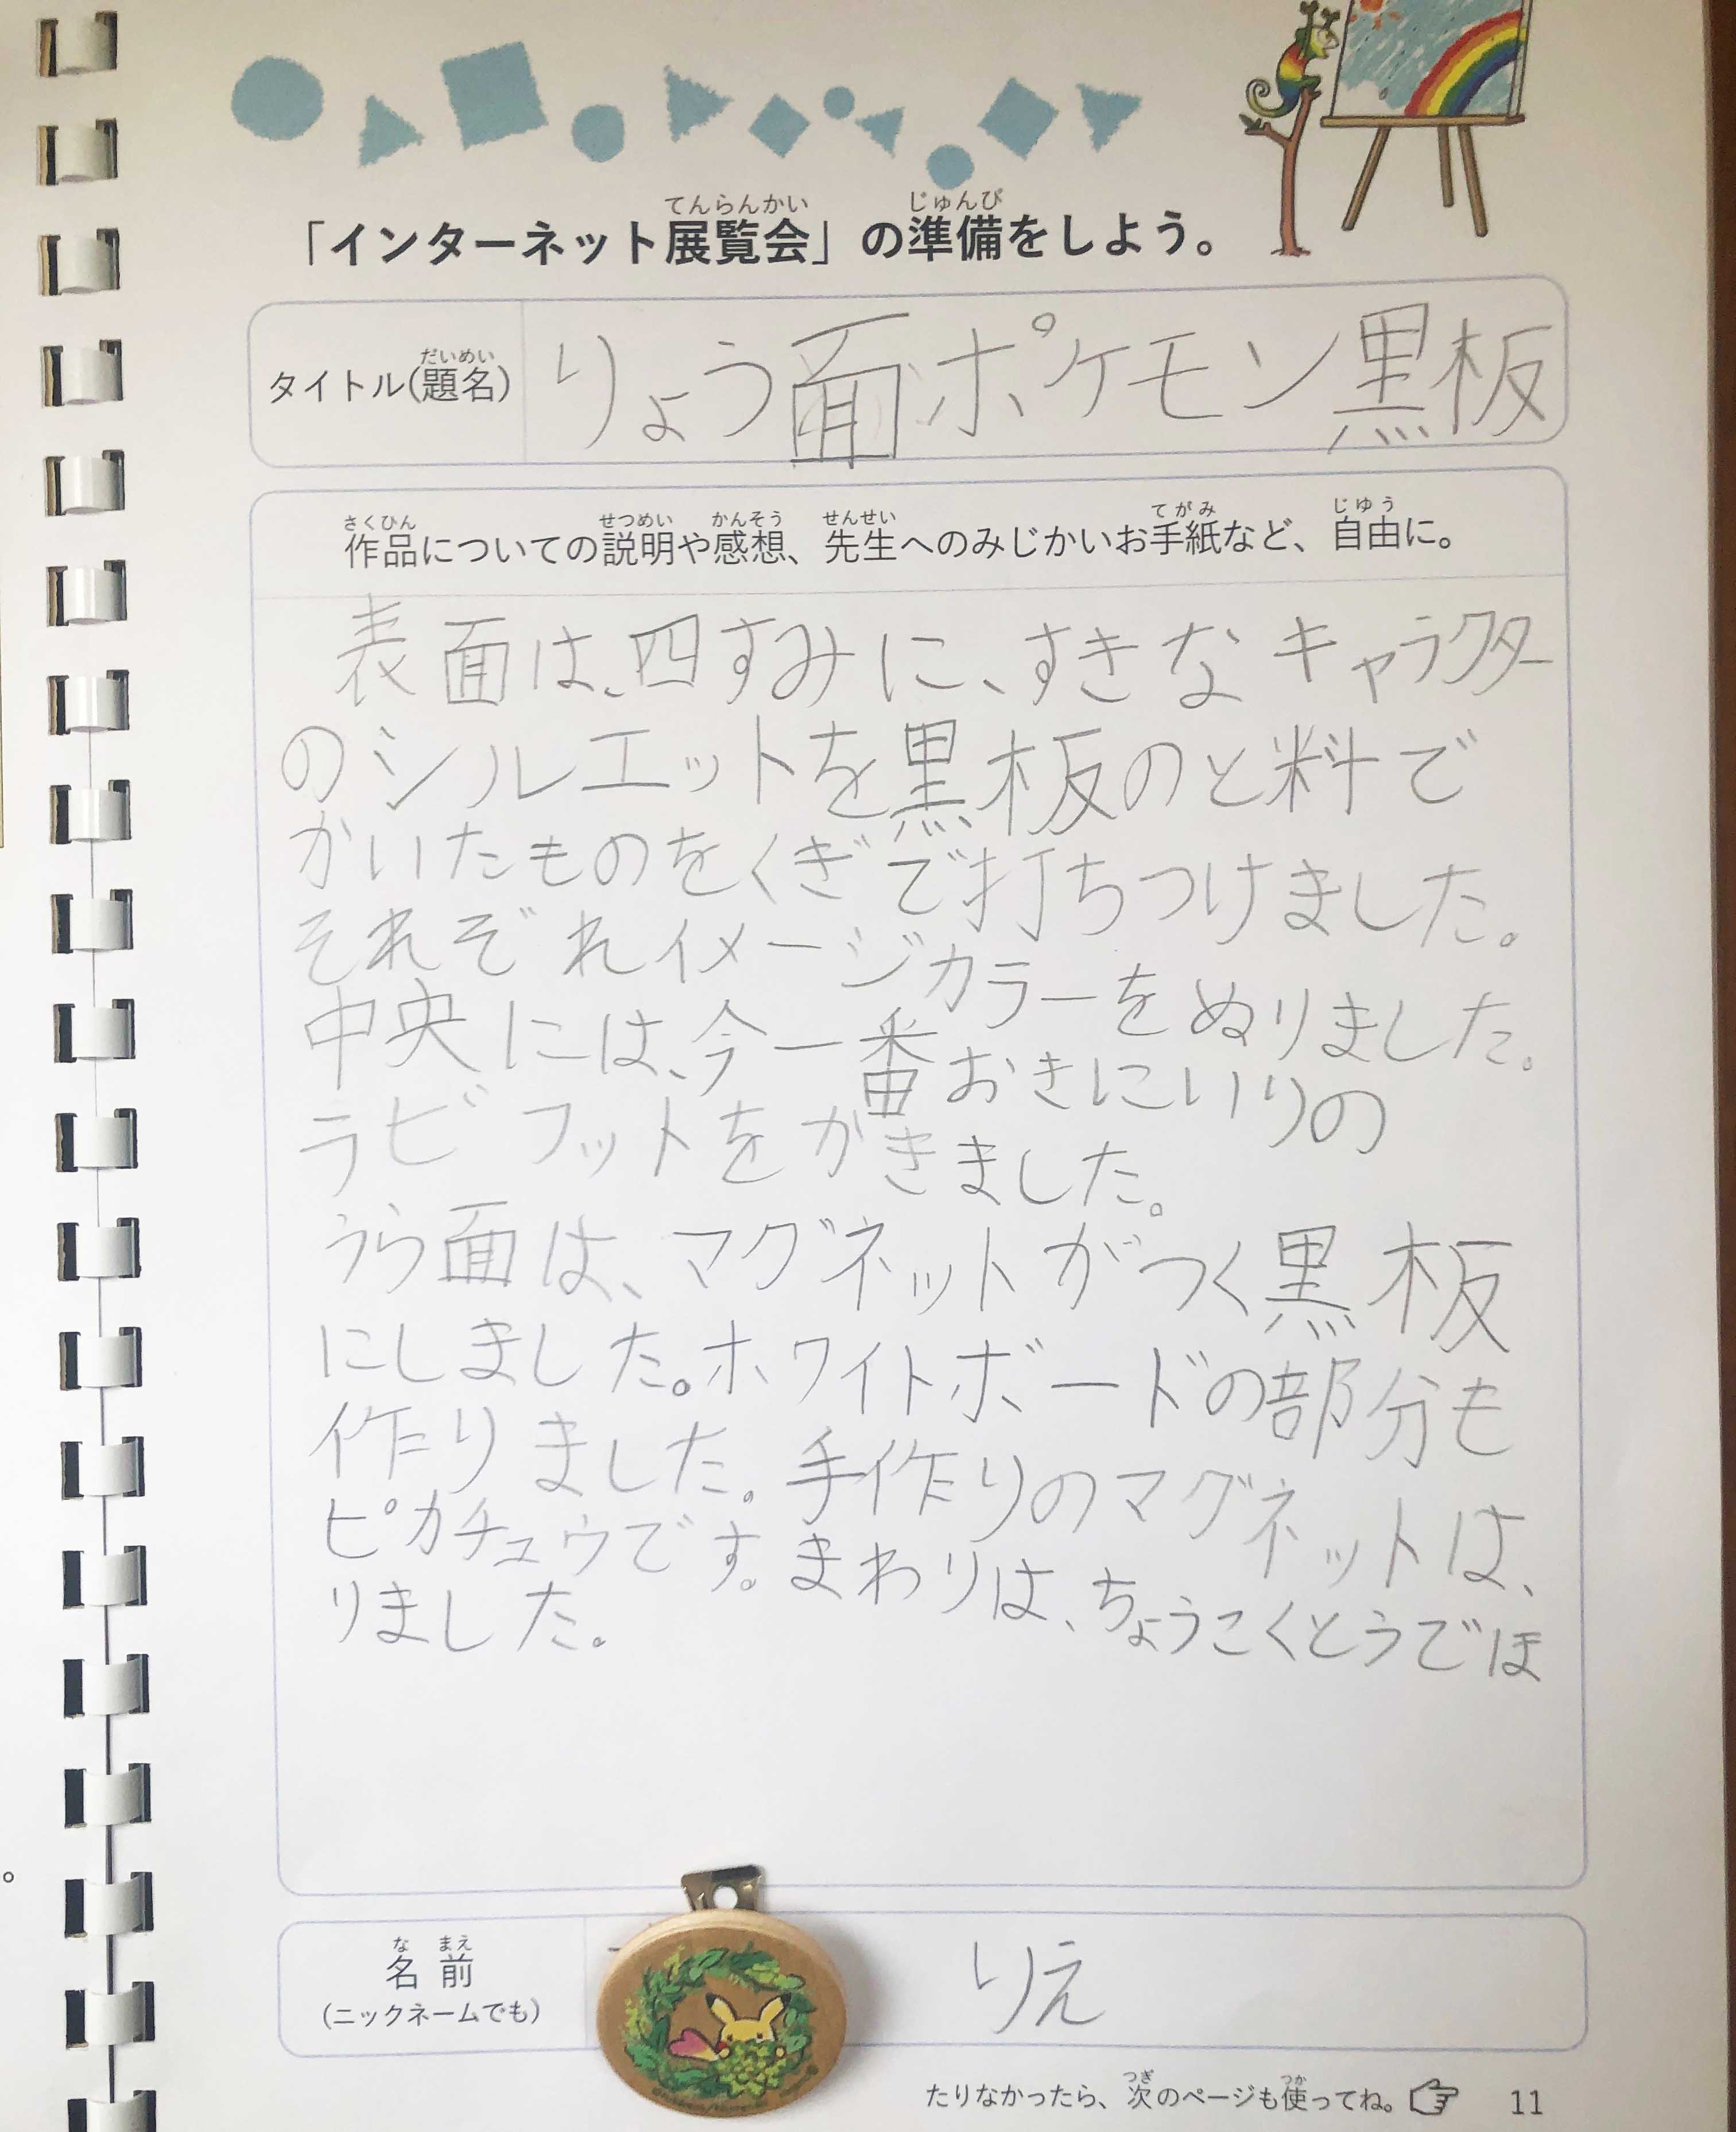 「インターネット展覧会」の準備をしよう。
てんらんかい じゅんび
タイトル(題名)
だいめい
りょう面ポケモン黒板
作品についての説明や感想、先生へのみじかいお手紙など、自由に。
さくひん せつめい かんそう せんせい てがみ じゆう
表面は、四すみに、すきなキャラクター
のシルエットを黒板のと料で
かいたものをくぎで打ちつけました。
それぞれイメージカラーをぬりました。
中央には、今一番おきにいりの
ラビフットをかきました。
うら面は、マグネットがつく黒板
にしました。ホワイトボードの部分も
作りました。手作りのマグネットは、
ピカチュウです。まわりは、ちょうこくとうでほ
りました。
名前
な まえ
(ニックネームでも)
りえ
たりなかったら、次のページも使ってね。
つぎ つか
11
。